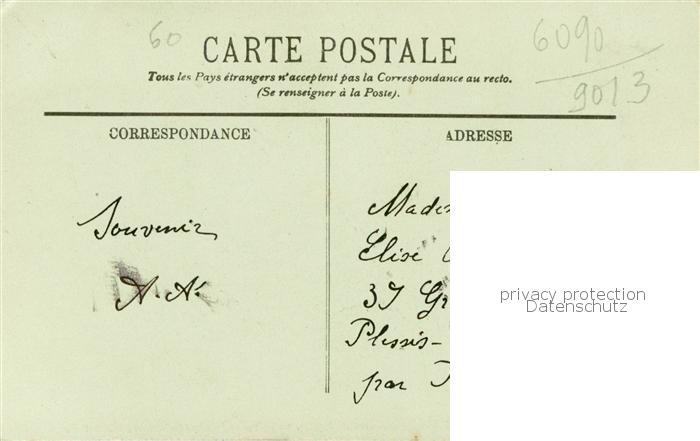 60
CARTE POSTALE
6090
9013
Tous les Pays étrangers n'acceptent pas la Correspondance au recto.
(Se renseigner à la Poste).
CORRESPONDANCE
ADRESSE
Souvenir
A. A.
Elise
37 Gr
Plessis-
par
privacy protection
Datenschutz